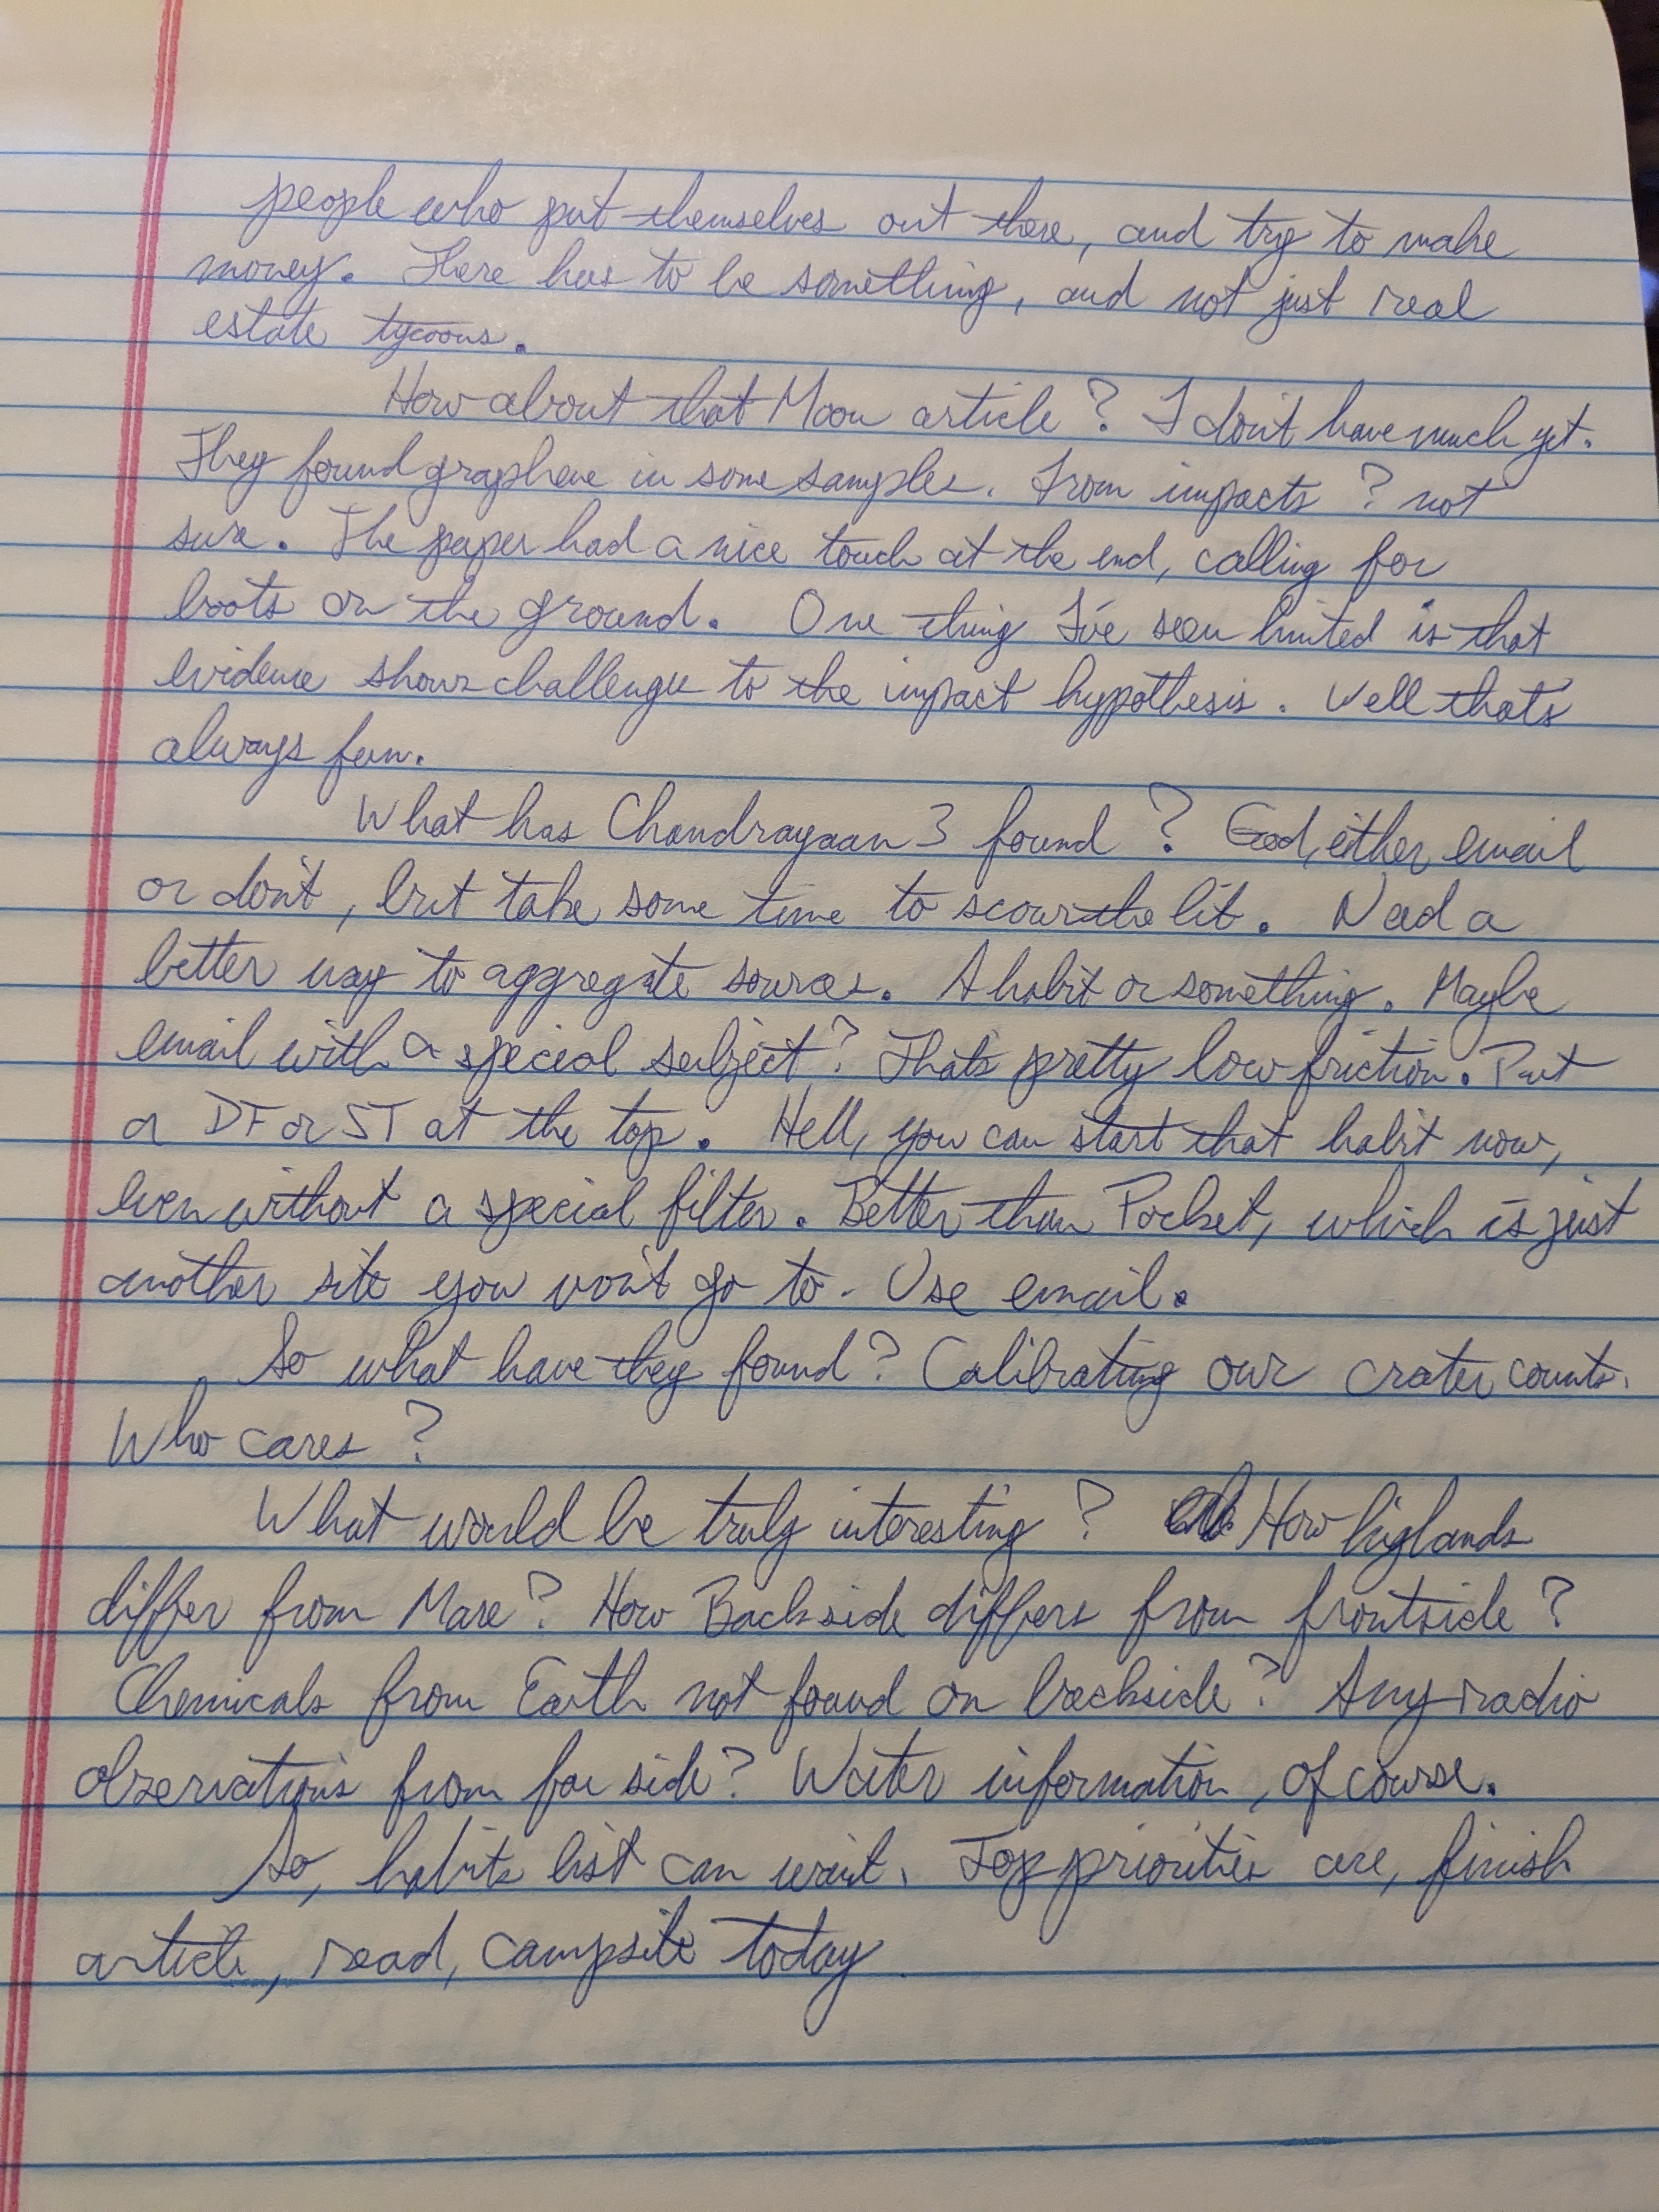 people who put themselves out there, and try to make
money. There has to be something, and not just real
estate tycoons.
How about that Moon article? I don't have much yet.
They found graphene in some samples. From impacts? not
sure. The paper had a nice touch at the end, calling for
boots on the ground. One thing I've seen hinted is that
evidence shows challenges to the impact hypothesis. Well that's
always fun.
What has Chandrayaan 3 found? God, either email
or don't, but take some time to scour the lit. Need a
better way to aggregate sources. A habit or something. Maybe
email with a special subject? That's pretty low friction. Put
a DF or ST at the top. Hell, you can start that habit now,
even without a special filter. Better than Pocket, which is just
another site you won't go to. Use email.
So what have they found? Calibrating our crater counts.
Who cares?
What would be truly interesting? How higlands
differ from Mare? How Backside differs from frontside?
Chemicals from Earth not found on backside? Any radio
observations from far side? Water information, of course.
So, habits list can wait. Top priorities are, finish
article, read, campsite today.